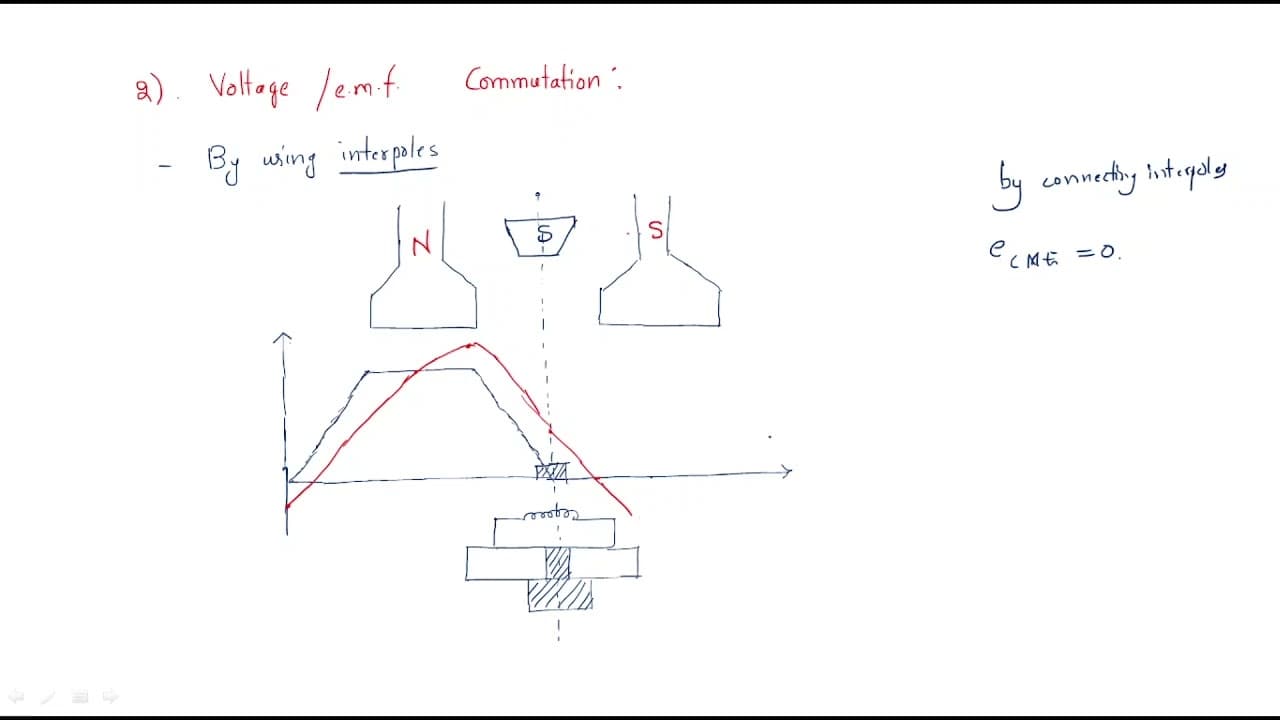 2). Voltage /e.m.f. Commutation:
- By using interpoles
by connecting interpoles
N S S
e_CME = 0.